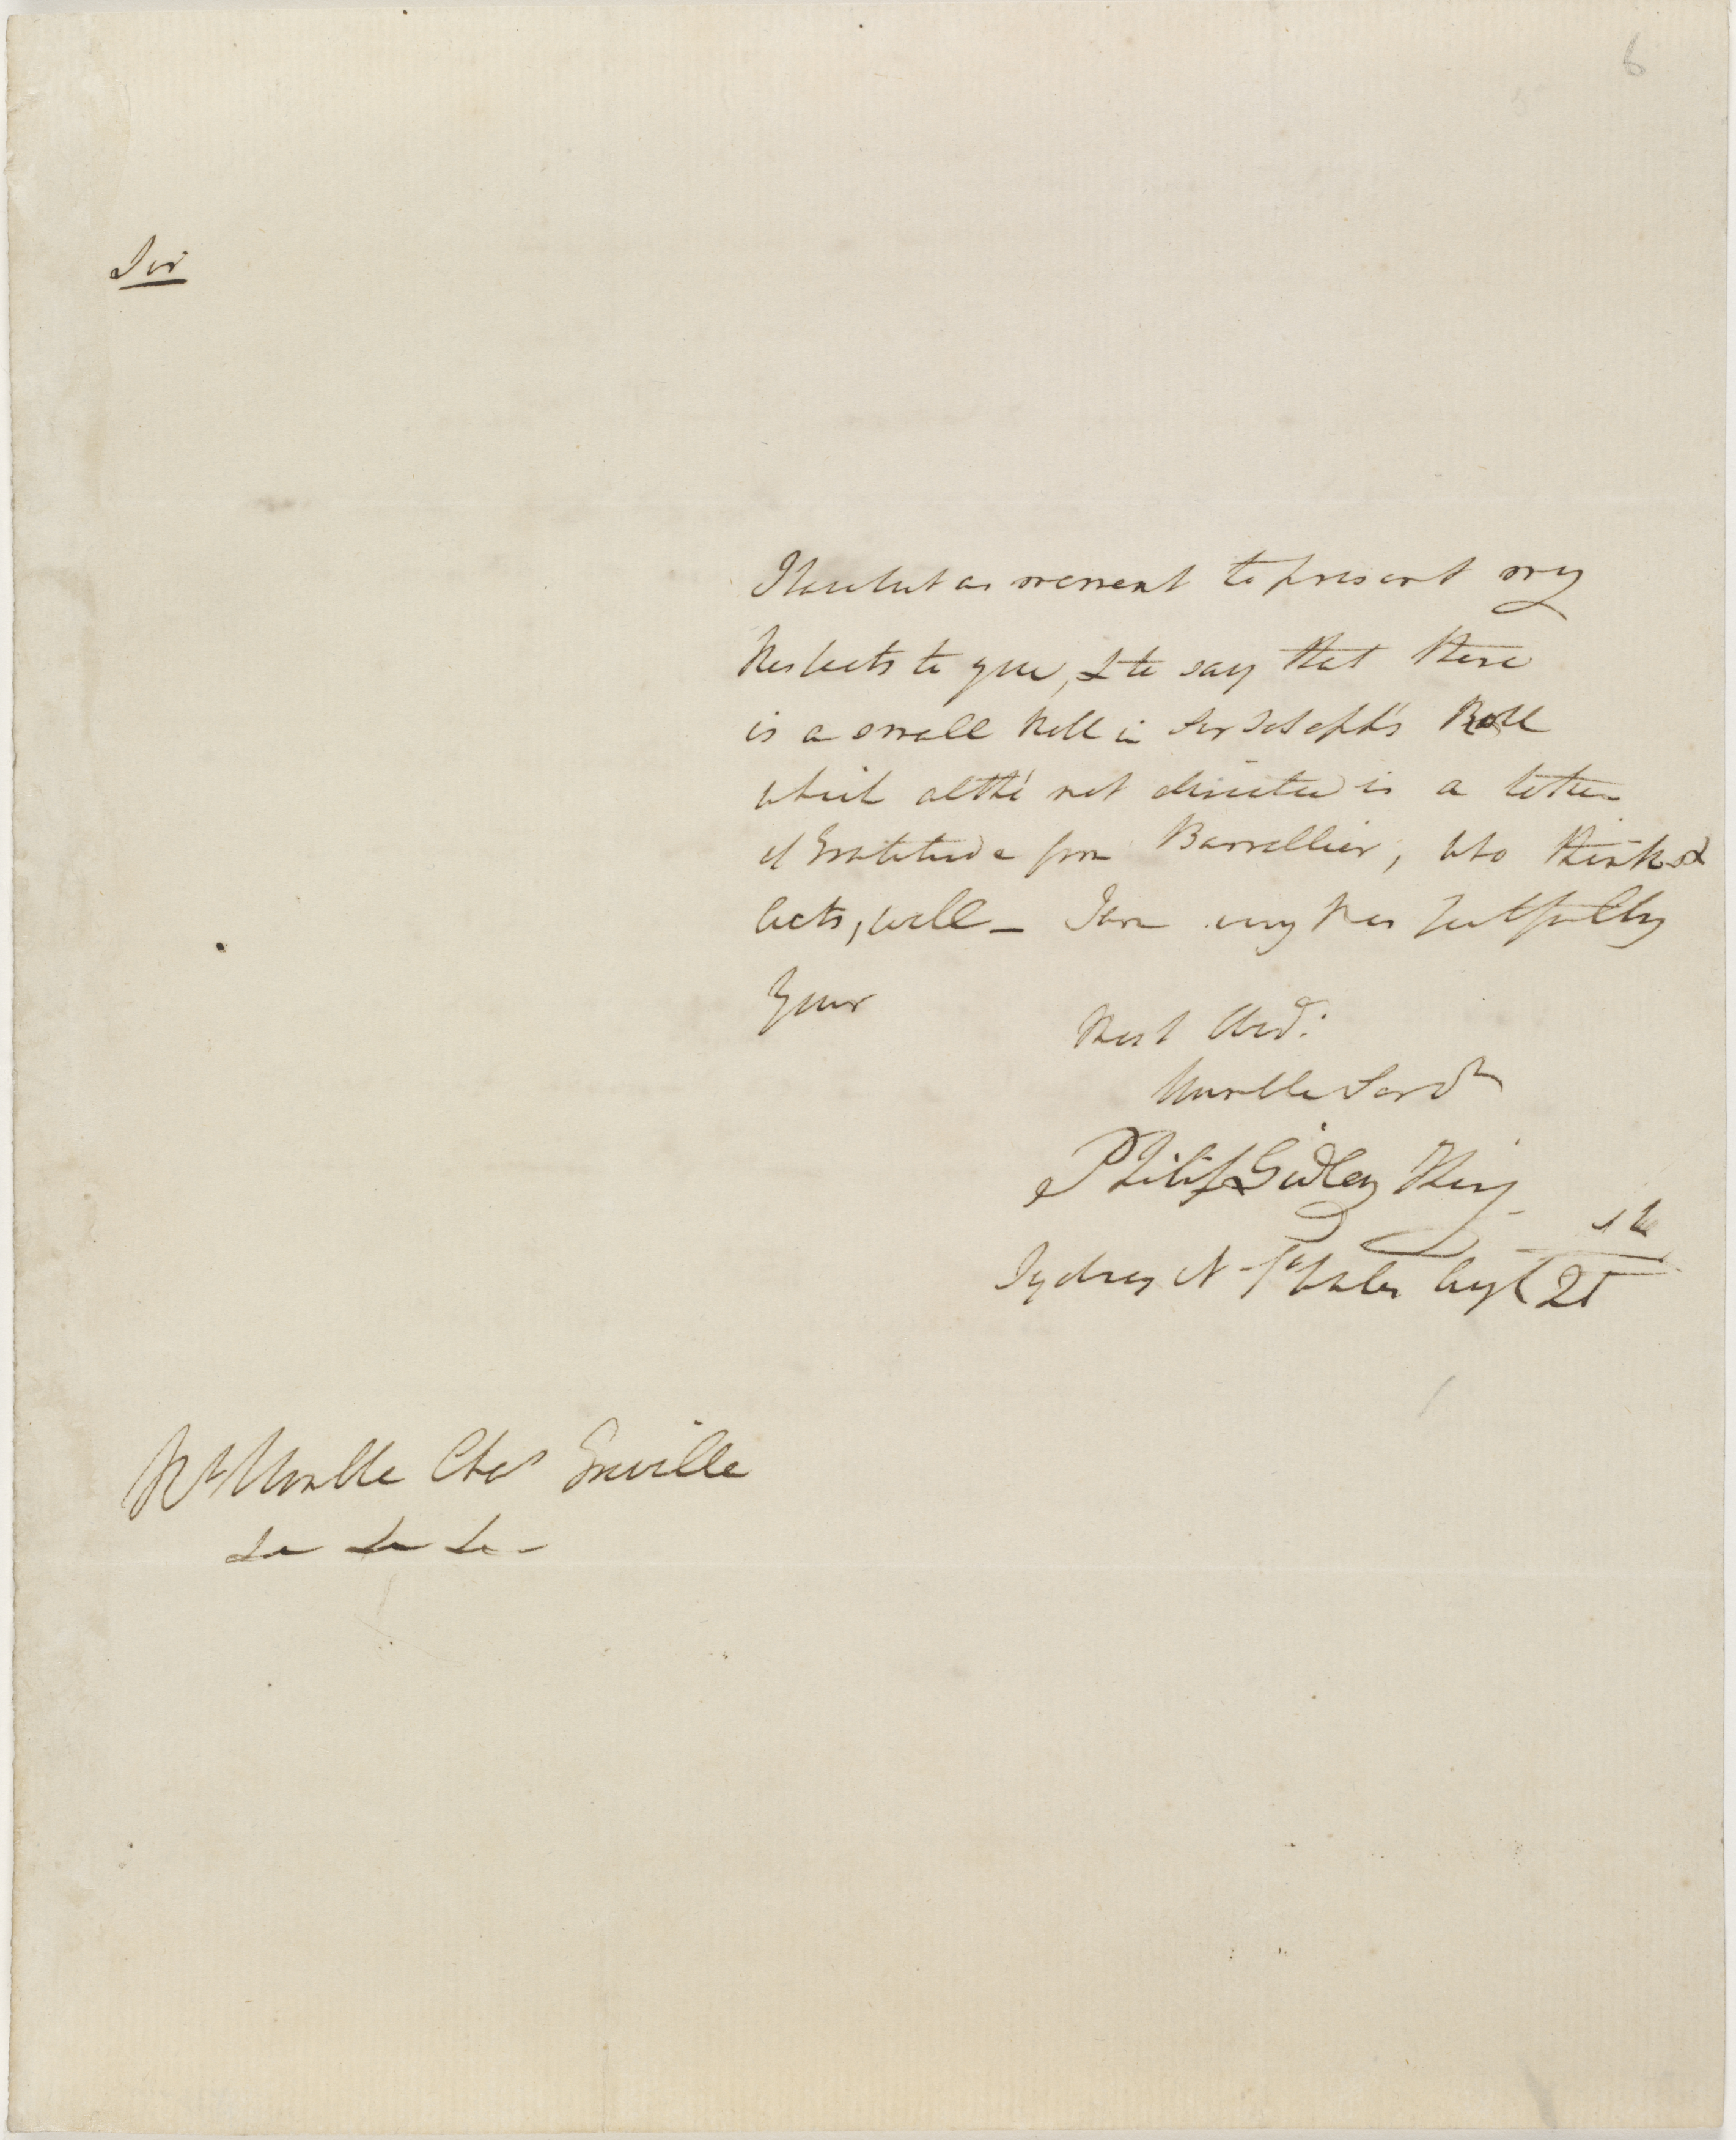 6
Sir
I have but a moment to present my
Respects to you, & to say that there
is a small Roll in Sir Joseph's Roll
which altho' not directed is a letter
of Gratitude from Barrallier, who thinks &
acts, well _ I am very Respectfully
Your
Most Obed.
Humble Serv.t
Philip Gidley King
Sydney N. S. Wales Aug.t 21
Rt Honble Chas Greville
&c &c &c